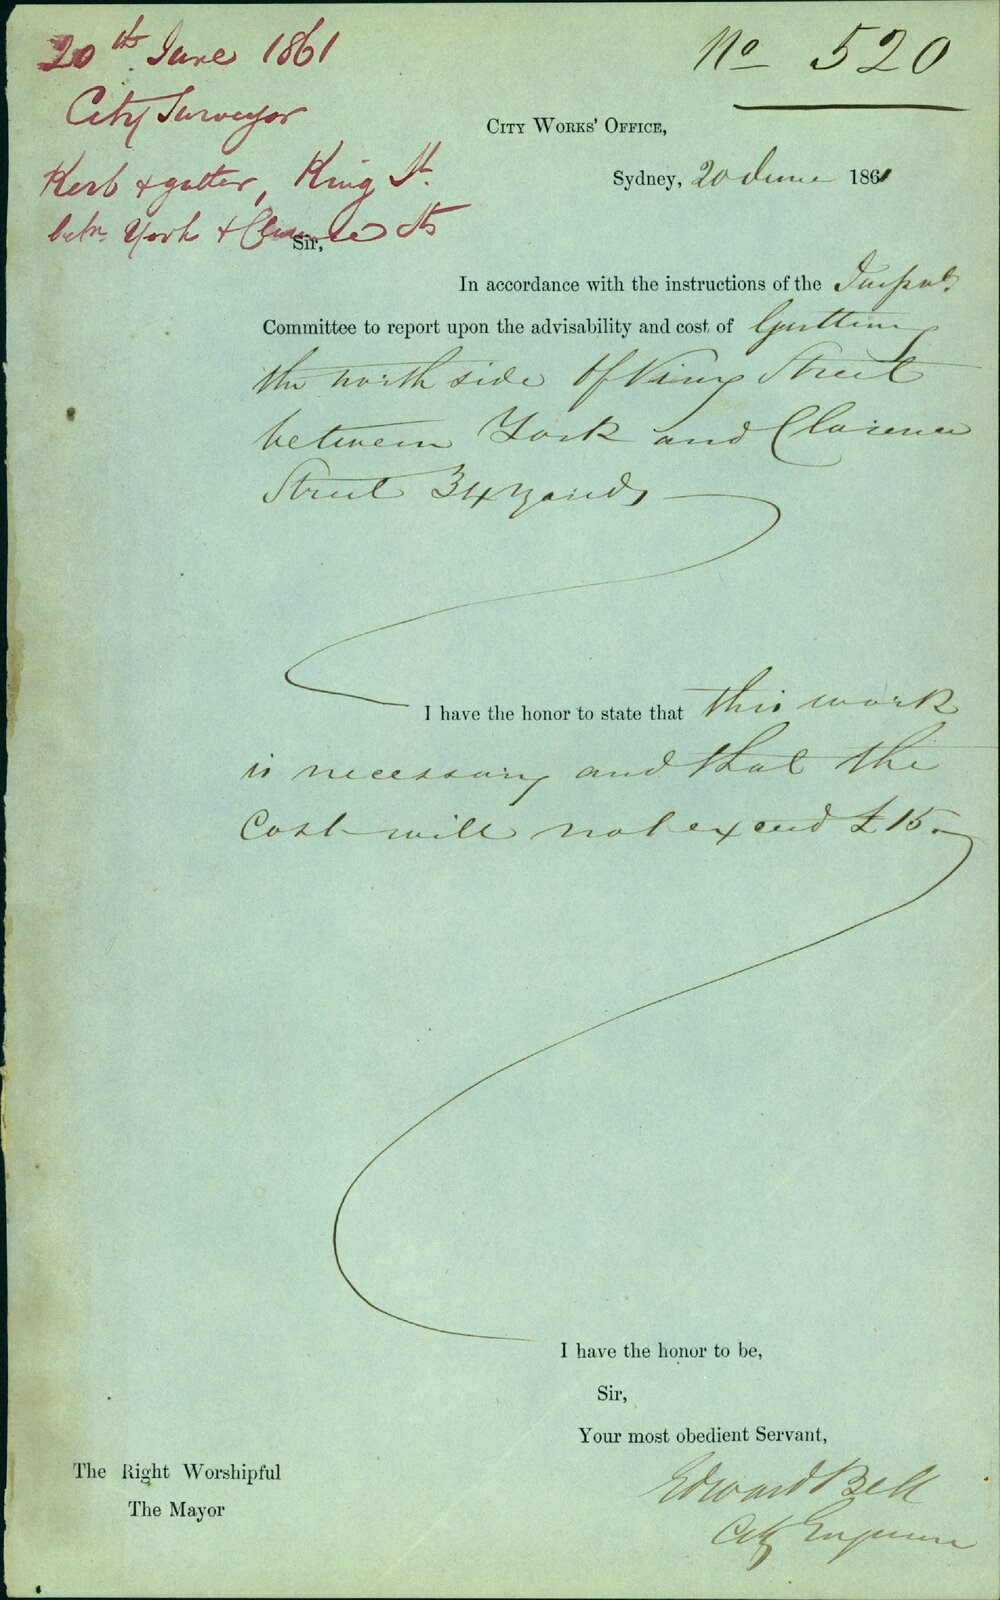 20th June 1861
City Surveyor
Kerb & gutter, King St.
betn York & Clarence Sts
No 520
City Works' Office,
Sydney, 20 June 1861
Sir,
In accordance with the instructions of the
Committee to report upon the advisability and cost of Guttering
the north side of King Street
between York and Clarence
Street 34 yards
I have the honor to state that this work
is necessary and that the
Cost will not exceed £15.
I have the honor to be,
Sir,
Your most obedient Servant,
Edward Bell
City Engineer
The Right Worshipful
The Mayor